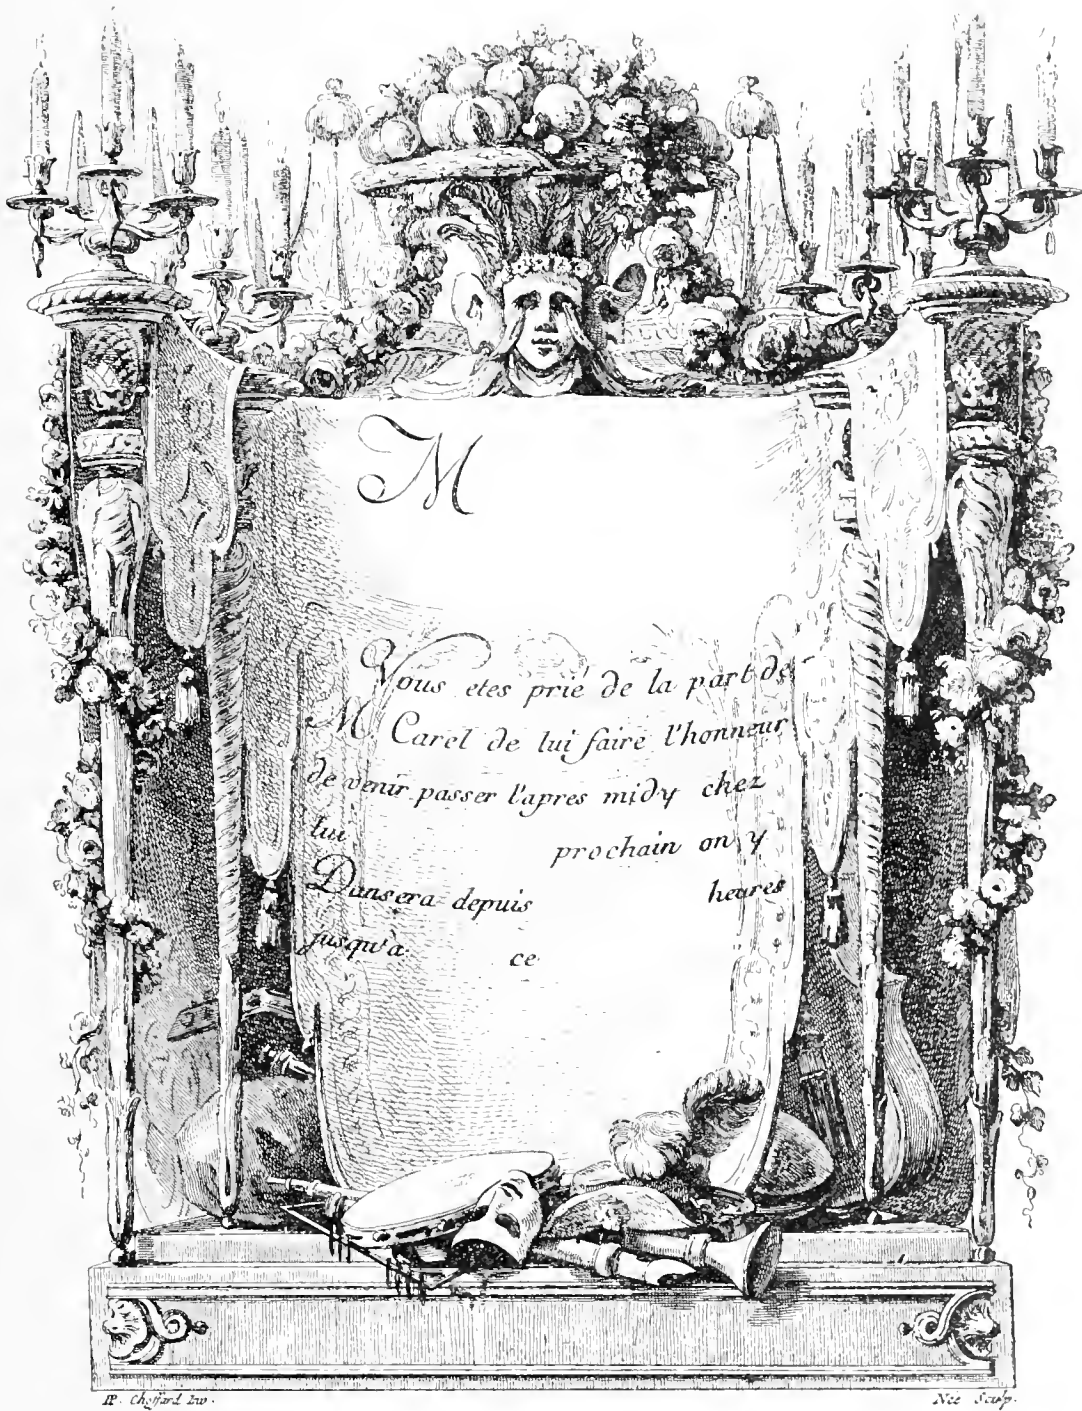 M
Vous etes prié de la part de
M. Carel de lui faire l'honneur
de venir passer l'apres midy chez
lui prochain on y
Dansera depuis heures
jusqu'à ce
P. Choffard inv.
Née Sculp.